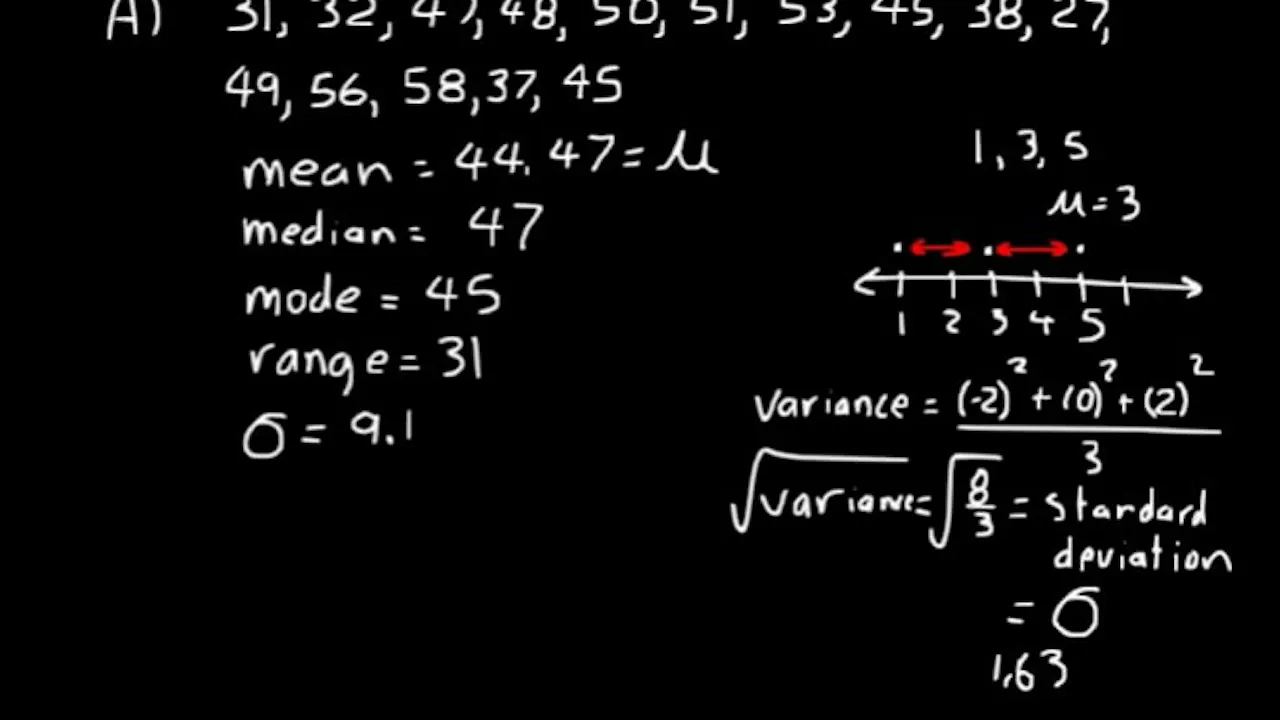 A) 31, 32, 47, 48, 50, 51, 53, 45, 38, 27,
49, 56, 58, 37, 45
mean = 44.47 = μ
median = 47
mode = 45
range = 31
σ = 9.1
1, 3, 5
μ = 3
1 2 3 4 5
variance = (-2)² + (0)² + (2)²
3
√variance = √8/3 = standard
deviation
= σ
1.63